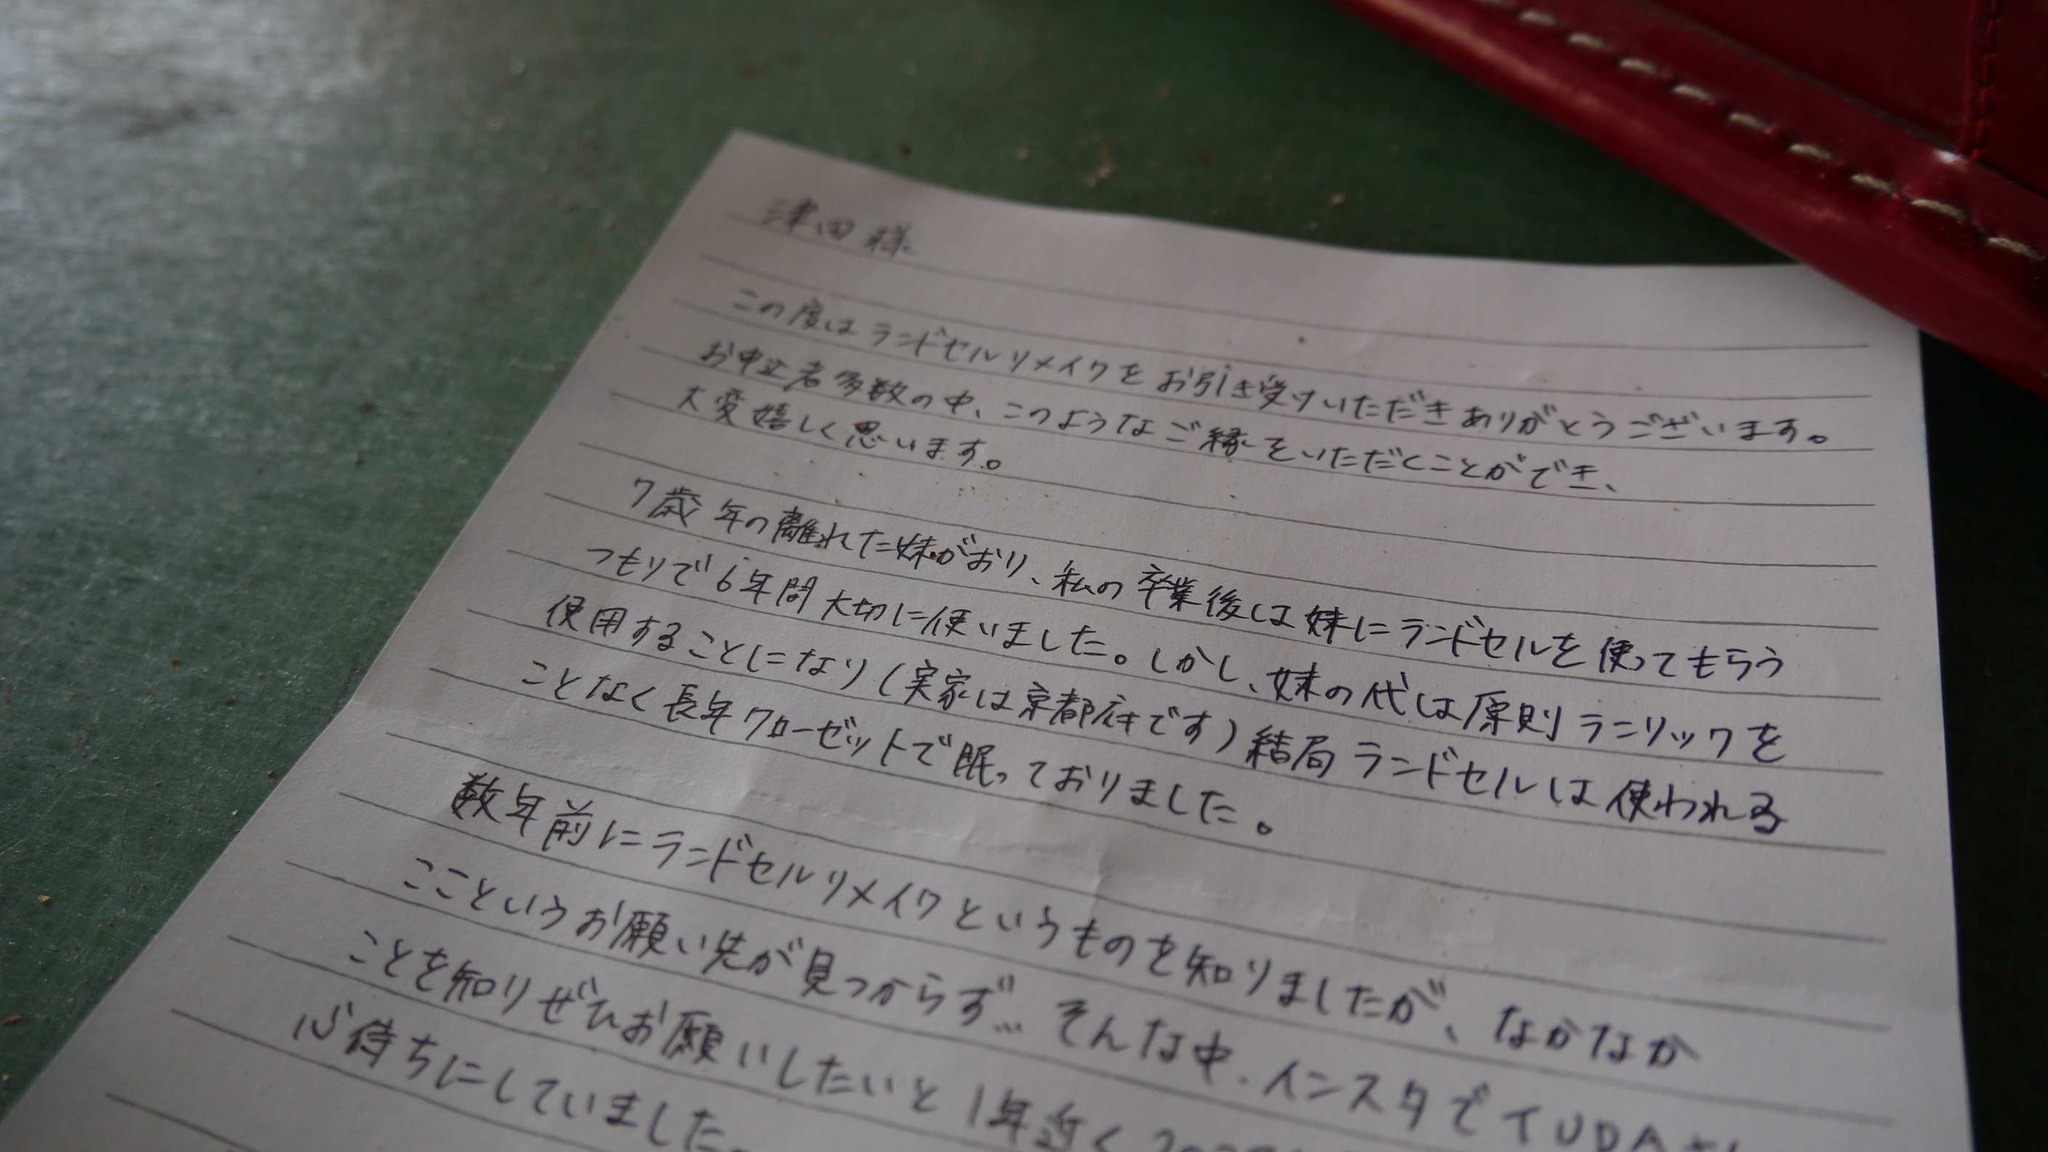 津田様
この度はランドセルリメイクをお引き受けいただきありがとうございます。
お申込者多数の中、このようなご縁をいただくことができ、
大変嬉しく思います。
7歳年の離れた妹がおり、私の卒業後は妹にランドセルを使ってもらう
つもりで6年間大切に使いました。しかし、妹の代は原則ランリックを
使用することになり(実家は京都府です)結局ランドセルは使われる
ことなく長年クローゼットで眠っておりました。
数年前にランドセルリメイクというものを知りましたが、なかなか
ここというお願い先が見つからず… そんな中、インスタでTUDA
ことを知りぜひお願いしたいと1年近く
心待ちにしていました